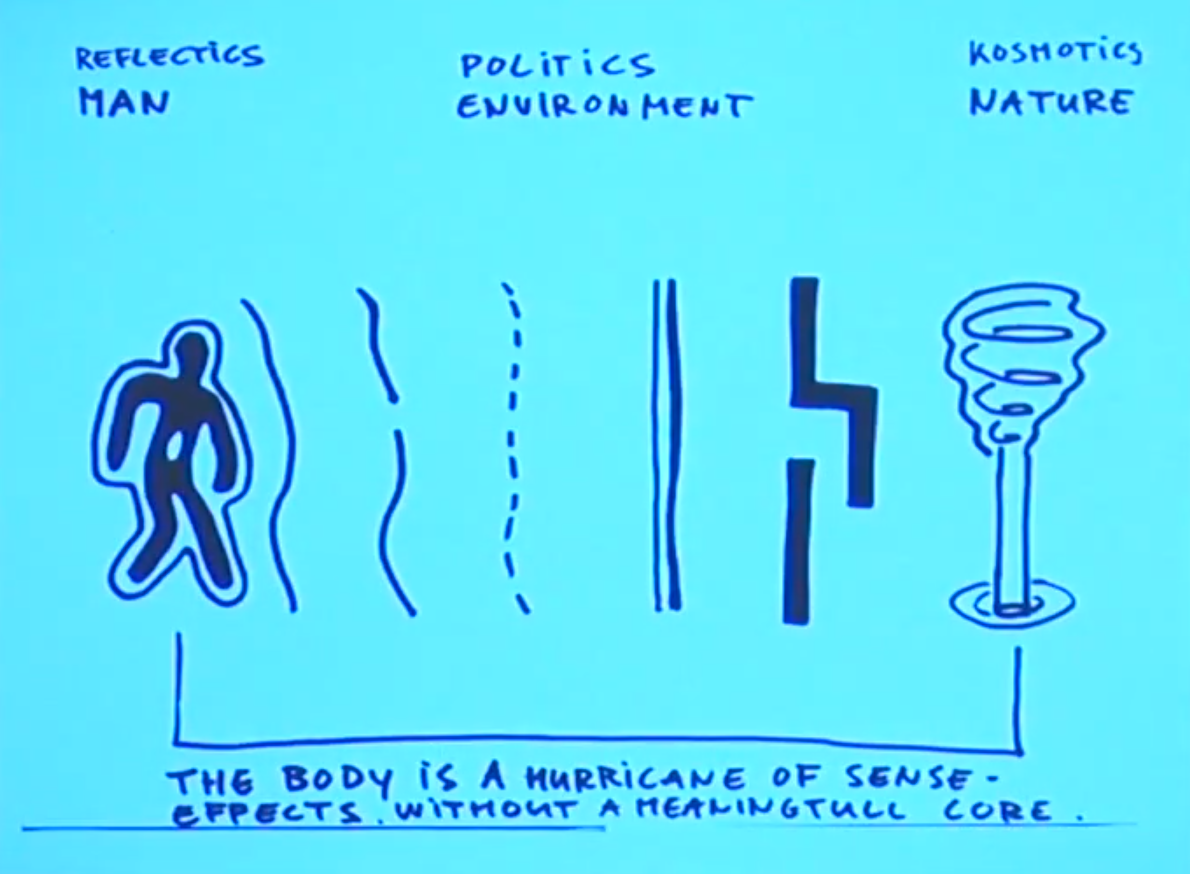 REFLECTICS
MAN
POLITICS
ENVIRONMENT
KOSMOTICS
NATURE
THE BODY IS A HURRICANE OF SENSE-
EFFECTS. WITHOUT A MEANINGTULL CORE.